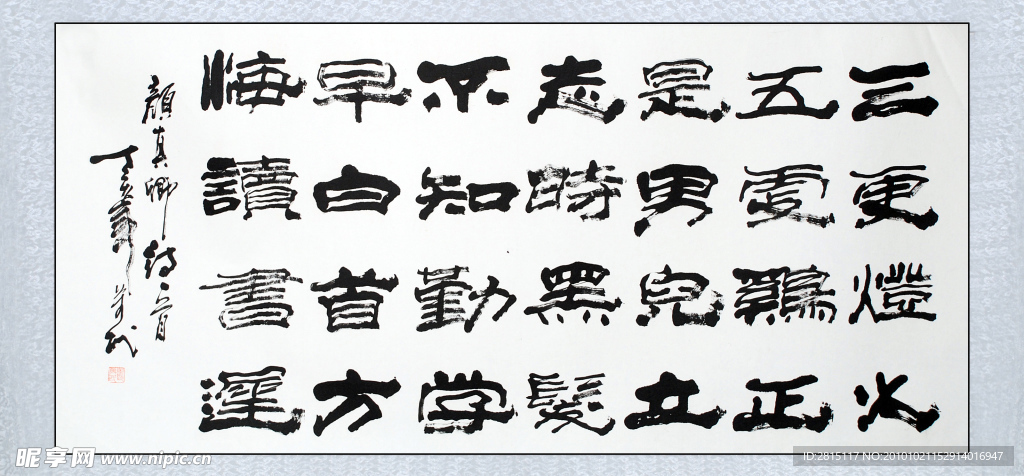 三更燈火
五更鷄正
是男兒立
志時黑髮
不知勤学
早白首方
悔讀書遲
顏真卿詩一首
昵享网 www.nipic.cn
ID:2815117 NO:20101021152914016947